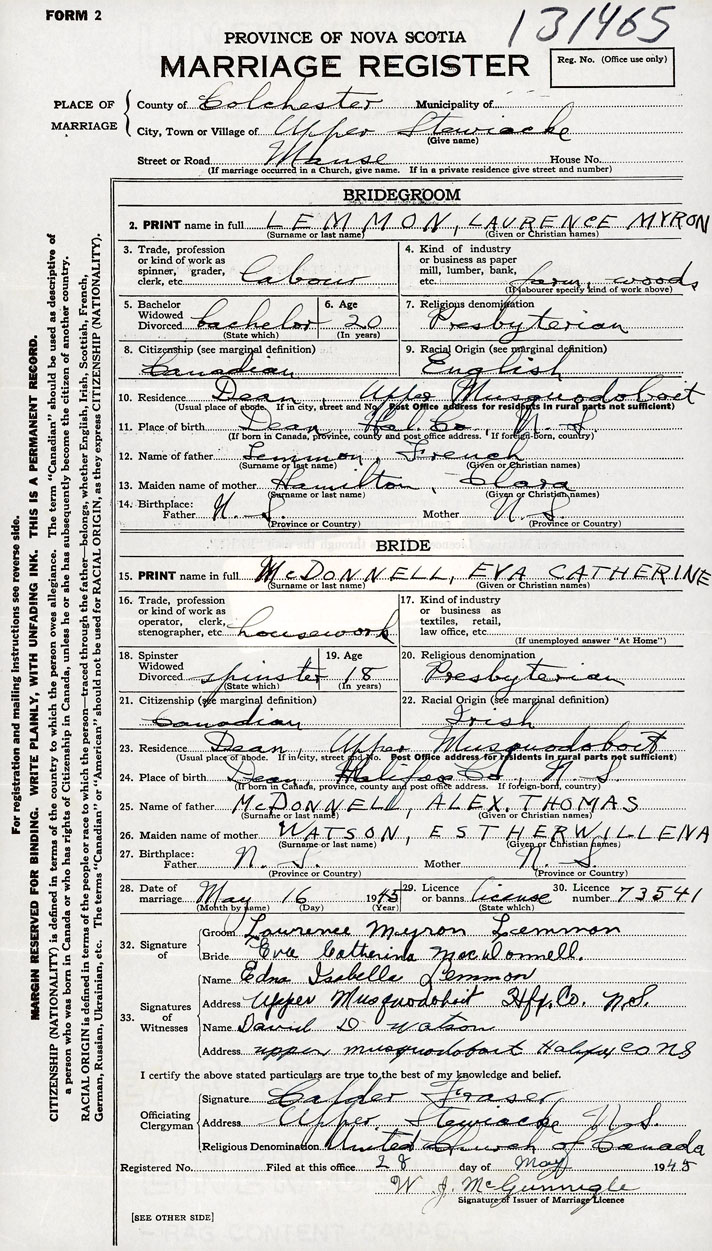 FORM 2
131465
PROVINCE OF NOVA SCOTIA
MARRIAGE REGISTER
Reg. No. (Office use only)
PLACE OF MARRIAGE
County of Colchester Municipality of
City, Town or Village of Upper Stewiacke
(Give name)
Street or Road Manse House No.
(If marriage occurred in a Church, give name. If in a private residence give street and number)
BRIDEGROOM
2. PRINT name in full LEMMON, LAURENCE MYRON
(Surname or last name) (Given or Christian names)
3. Trade, profession or kind of work as spinner, grader, clerk, etc. labour
4. Kind of industry or business as paper mill, lumber, bank, etc. farm, woods
(If labourer specify kind of work above)
5. Bachelor Widowed Divorced bachelor
(State which)
6. Age 20
(In years)
7. Religious denomination Presbyterian
8. Citizenship (see marginal definition) Canadian
9. Racial Origin (see marginal definition) English
10. Residence Dean, Upper Musquodoboit
(Usual place of abode. If in city, street and No. Post Office address for residents in rural parts not sufficient)
11. Place of birth Dean, Hal. Co., N. S.
(If born in Canada, province, county and post office address. If foreign-born, country)
12. Name of father Lemmon, French
(Surname or last name) (Given or Christian names)
13. Maiden name of mother Hamilton, Clara
(Surname or last name) (Given or Christian names)
14. Birthplace: Father N. S. Mother N. S.
(Province or Country) (Province or Country)
BRIDE
15. PRINT name in full McDONNELL, EVA CATHERINE
(Surname or last name) (Given or Christian names)
16. Trade, profession or kind of work as operator, clerk, stenographer, etc. housework
17. Kind of industry or business as textiles, retail, law office, etc.
(If unemployed answer "At Home")
18. Spinster Widowed Divorced spinster
(State which)
19. Age 18
(In years)
20. Religious denomination Presbyterian
21. Citizenship (see marginal definition) Canadian
22. Racial Origin (see marginal definition) Irish
23. Residence Dean, Upper Musquodoboit
(Usual place of abode. If in city, street and No. Post Office address for residents in rural parts not sufficient)
24. Place of birth Dean, Halifax Co., N. S.
(If born in Canada, province, county and post office address. If foreign-born, country)
25. Name of father McDONNELL, ALEX. THOMAS
(Surname or last name) (Given or Christian names)
26. Maiden name of mother WATSON, ESTHER WILLENA
(Surname or last name) (Given or Christian names)
27. Birthplace: Father N. S. Mother N. S.
(Province or Country) (Province or Country)
28. Date of marriage May 16 1945
(Month by name) (Day) (Year)
29. Licence or banns license
(State which)
30. Licence number 73541
32. Signature of
Groom Lawrence Myron Lemmon
Bride Eva Catherina MacDonnell.
33. Signatures of Witnesses
Name Edna Isabella Lemmon
Address Upper Musquodoboit Hfx. Co. N.S.
Name David D Watson
Address upper musquodoboit Halifax CO NS
I certify the above stated particulars are true to the best of my knowledge and belief.
Officiating Clergyman
Signature Calder Fraser
Address Upper Stewiacke N. S.
Religious Denomination United Church of Canada
Registered No. Filed at this office 28 day of May 1945
W. J. McGunnigle
Signature of Issuer of Marriage Licence
[SEE OTHER SIDE]
For registration and mailing instructions see reverse side.
MARGIN RESERVED FOR BINDING. WRITE PLAINLY, WITH UNFADING INK. THIS IS A PERMANENT RECORD.
CITIZENSHIP (NATIONALITY) is defined in terms of the country to which the person owes allegiance. The term "Canadian" should be used as descriptive of
a person who was born in Canada or who has rights of Citizenship in Canada, unless he or she has subsequently become the citizen of another country.
RACIAL ORIGIN is defined in terms of the people or race to which the person—traced through the father—belongs, whether English, Irish, Scottish, French,
German, Russian, Ukrainian, etc. The terms "Canadian" or "American" should not be used for RACIAL ORIGIN, as they express CITIZENSHIP (NATIONALITY).